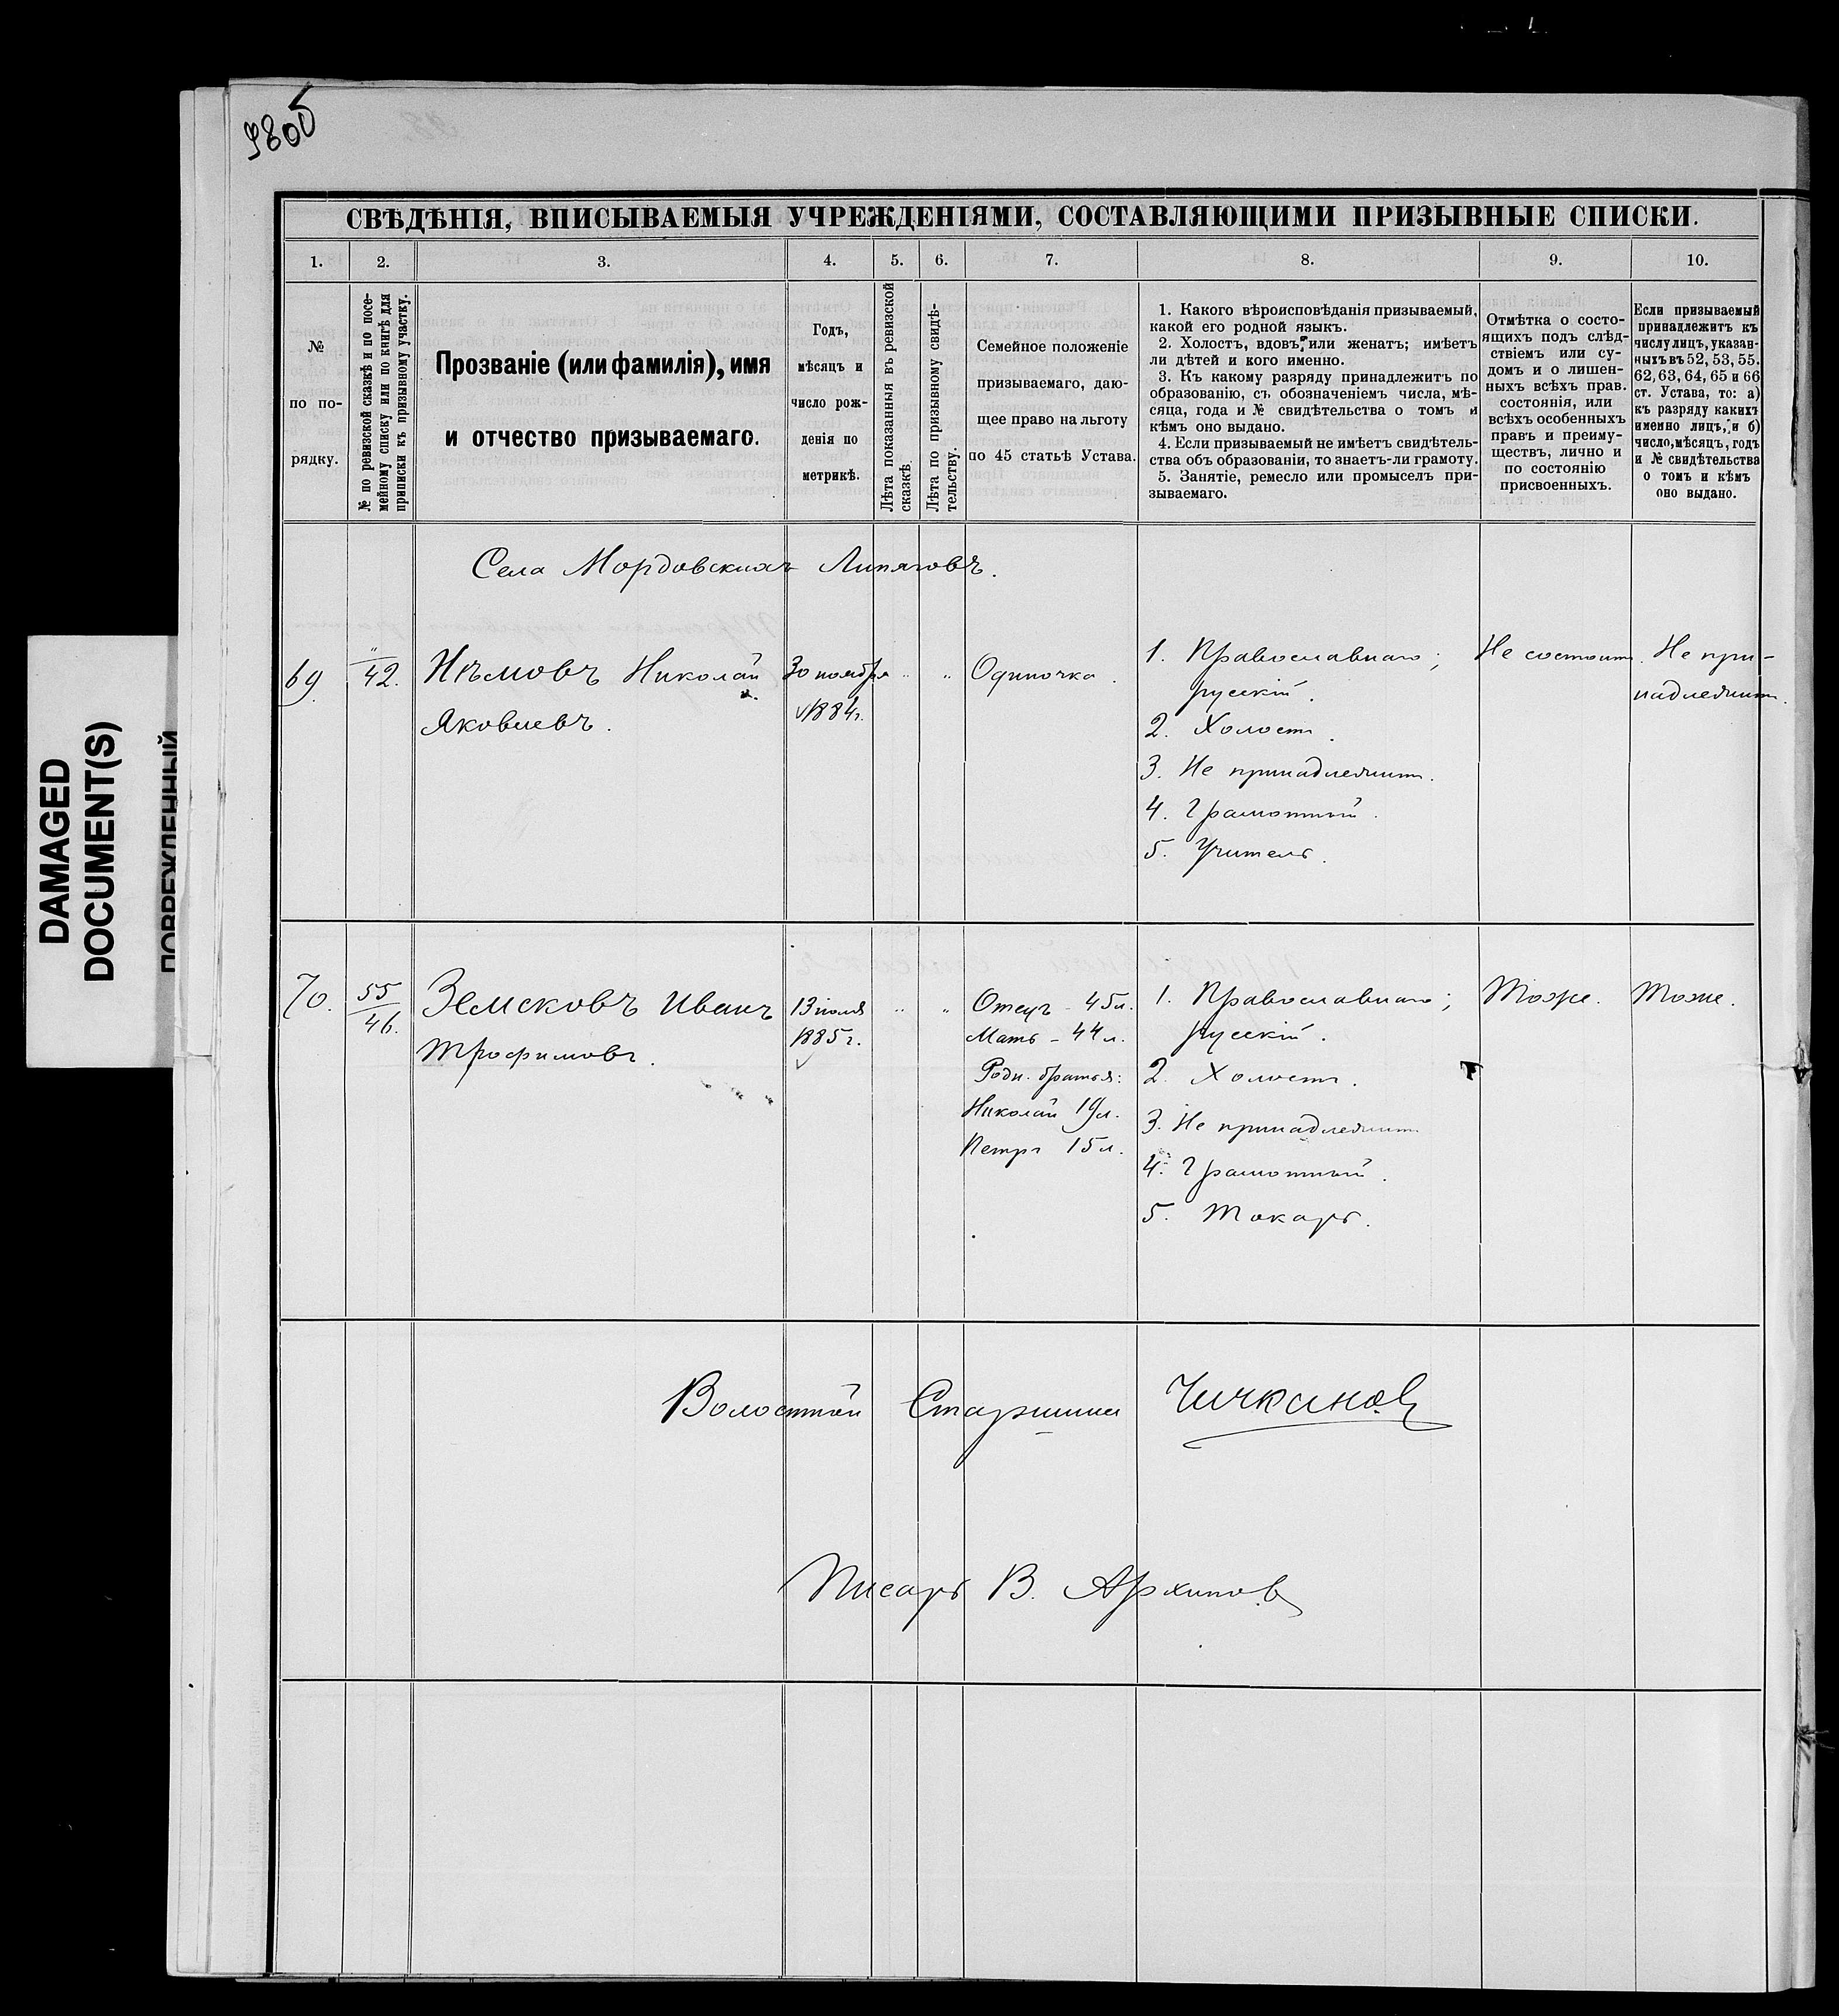 98об
СВѢДѢНІЯ, ВПИСЫВАЕМЫЯ УЧРЕЖДЕНІЯМИ, СОСТАВЛЯЮЩИМИ ПРИЗЫВНЫЕ СПИСКИ.
1. 2. 3. 4. 5. 6. 7. 8. 9. 10.
№
по по-
рядку.
№ по ревизской сказкѣ и по посе-
мейному списку или по книгѣ для
приписки къ призывному участку.
Прозваніе (или фамилія), имя
и отчество призываемаго.
Годъ,
мѣсяцъ и
число рож-
денія по
метрикѣ.
Лѣта показанныя въ ревизской
сказкѣ.
Лѣта по призывному свидѣ-
тельству.
Семейное положеніе
призываемаго, даю-
щее право на льготу
по 45 статьѣ Устава.
1. Какого вѣроисповѣданія призываемый,
какой его родной языкъ.
2. Холостъ, вдовъ, или женатъ; имѣетъ
ли дѣтей и кого именно.
3. Къ какому разряду принадлежитъ по
образованію, съ обозначеніемъ числа, мѣ-
сяца, года и № свидѣтельства о томъ и
кѣмъ оно выдано.
4. Если призываемый не имѣетъ свидѣтель-
ства объ образованіи, то знаетъ-ли грамоту.
5. Занятіе, ремесло или промыселъ при-
зываемаго.
Отмѣтка о состо-
ящихъ подъ слѣд-
ствіемъ или су-
домъ и о лишен-
ныхъ всѣхъ прав.
состоянія, или
всѣхъ особенныхъ
правъ и преиму-
ществъ, лично и
по состоянію
присвоенныхъ.
Если призываемый
принадлежитъ къ
числу лицъ, указан-
ныхъ въ 52, 53, 55.
62, 63, 64, 65 и 66
ст. Устава, то: а)
къ разряду какихъ
именно лицъ, и б)
число, мѣсяцъ, годъ
и № свидѣтельства
о томъ и кѣмъ
оно выдано.
Села Мордовскихъ Липяговъ.
69.
"
42.
Нѣмовъ Николай
Яковлевъ.
30 ноября
1884г.
" "
Одиночка.
1. Православнаго;
русскій.
2. Холостъ.
3. Не принадлежитъ.
4. Грамотный.
5. Учитель.
Не состоитъ.
Не при-
надлежитъ.
70.
55
46.
Земсковъ Иванъ
Трофимовъ.
13 іюля
1885г.
" "
Отецъ - 45л.
Мать - 44л.
Родн. братья:
Николай 19л.
Петръ 15л.
1. Православнаго;
русскій.
2. Холостъ.
3. Не принадлежитъ
4. Грамотный.
5. Токарь.
Тоже.
Тоже.
Волостной Старшина Чичкановъ
Писарь В. Архипов
DAMAGED
DOCUMENT(S)
ПОВРЕЖДЕННЫЙ